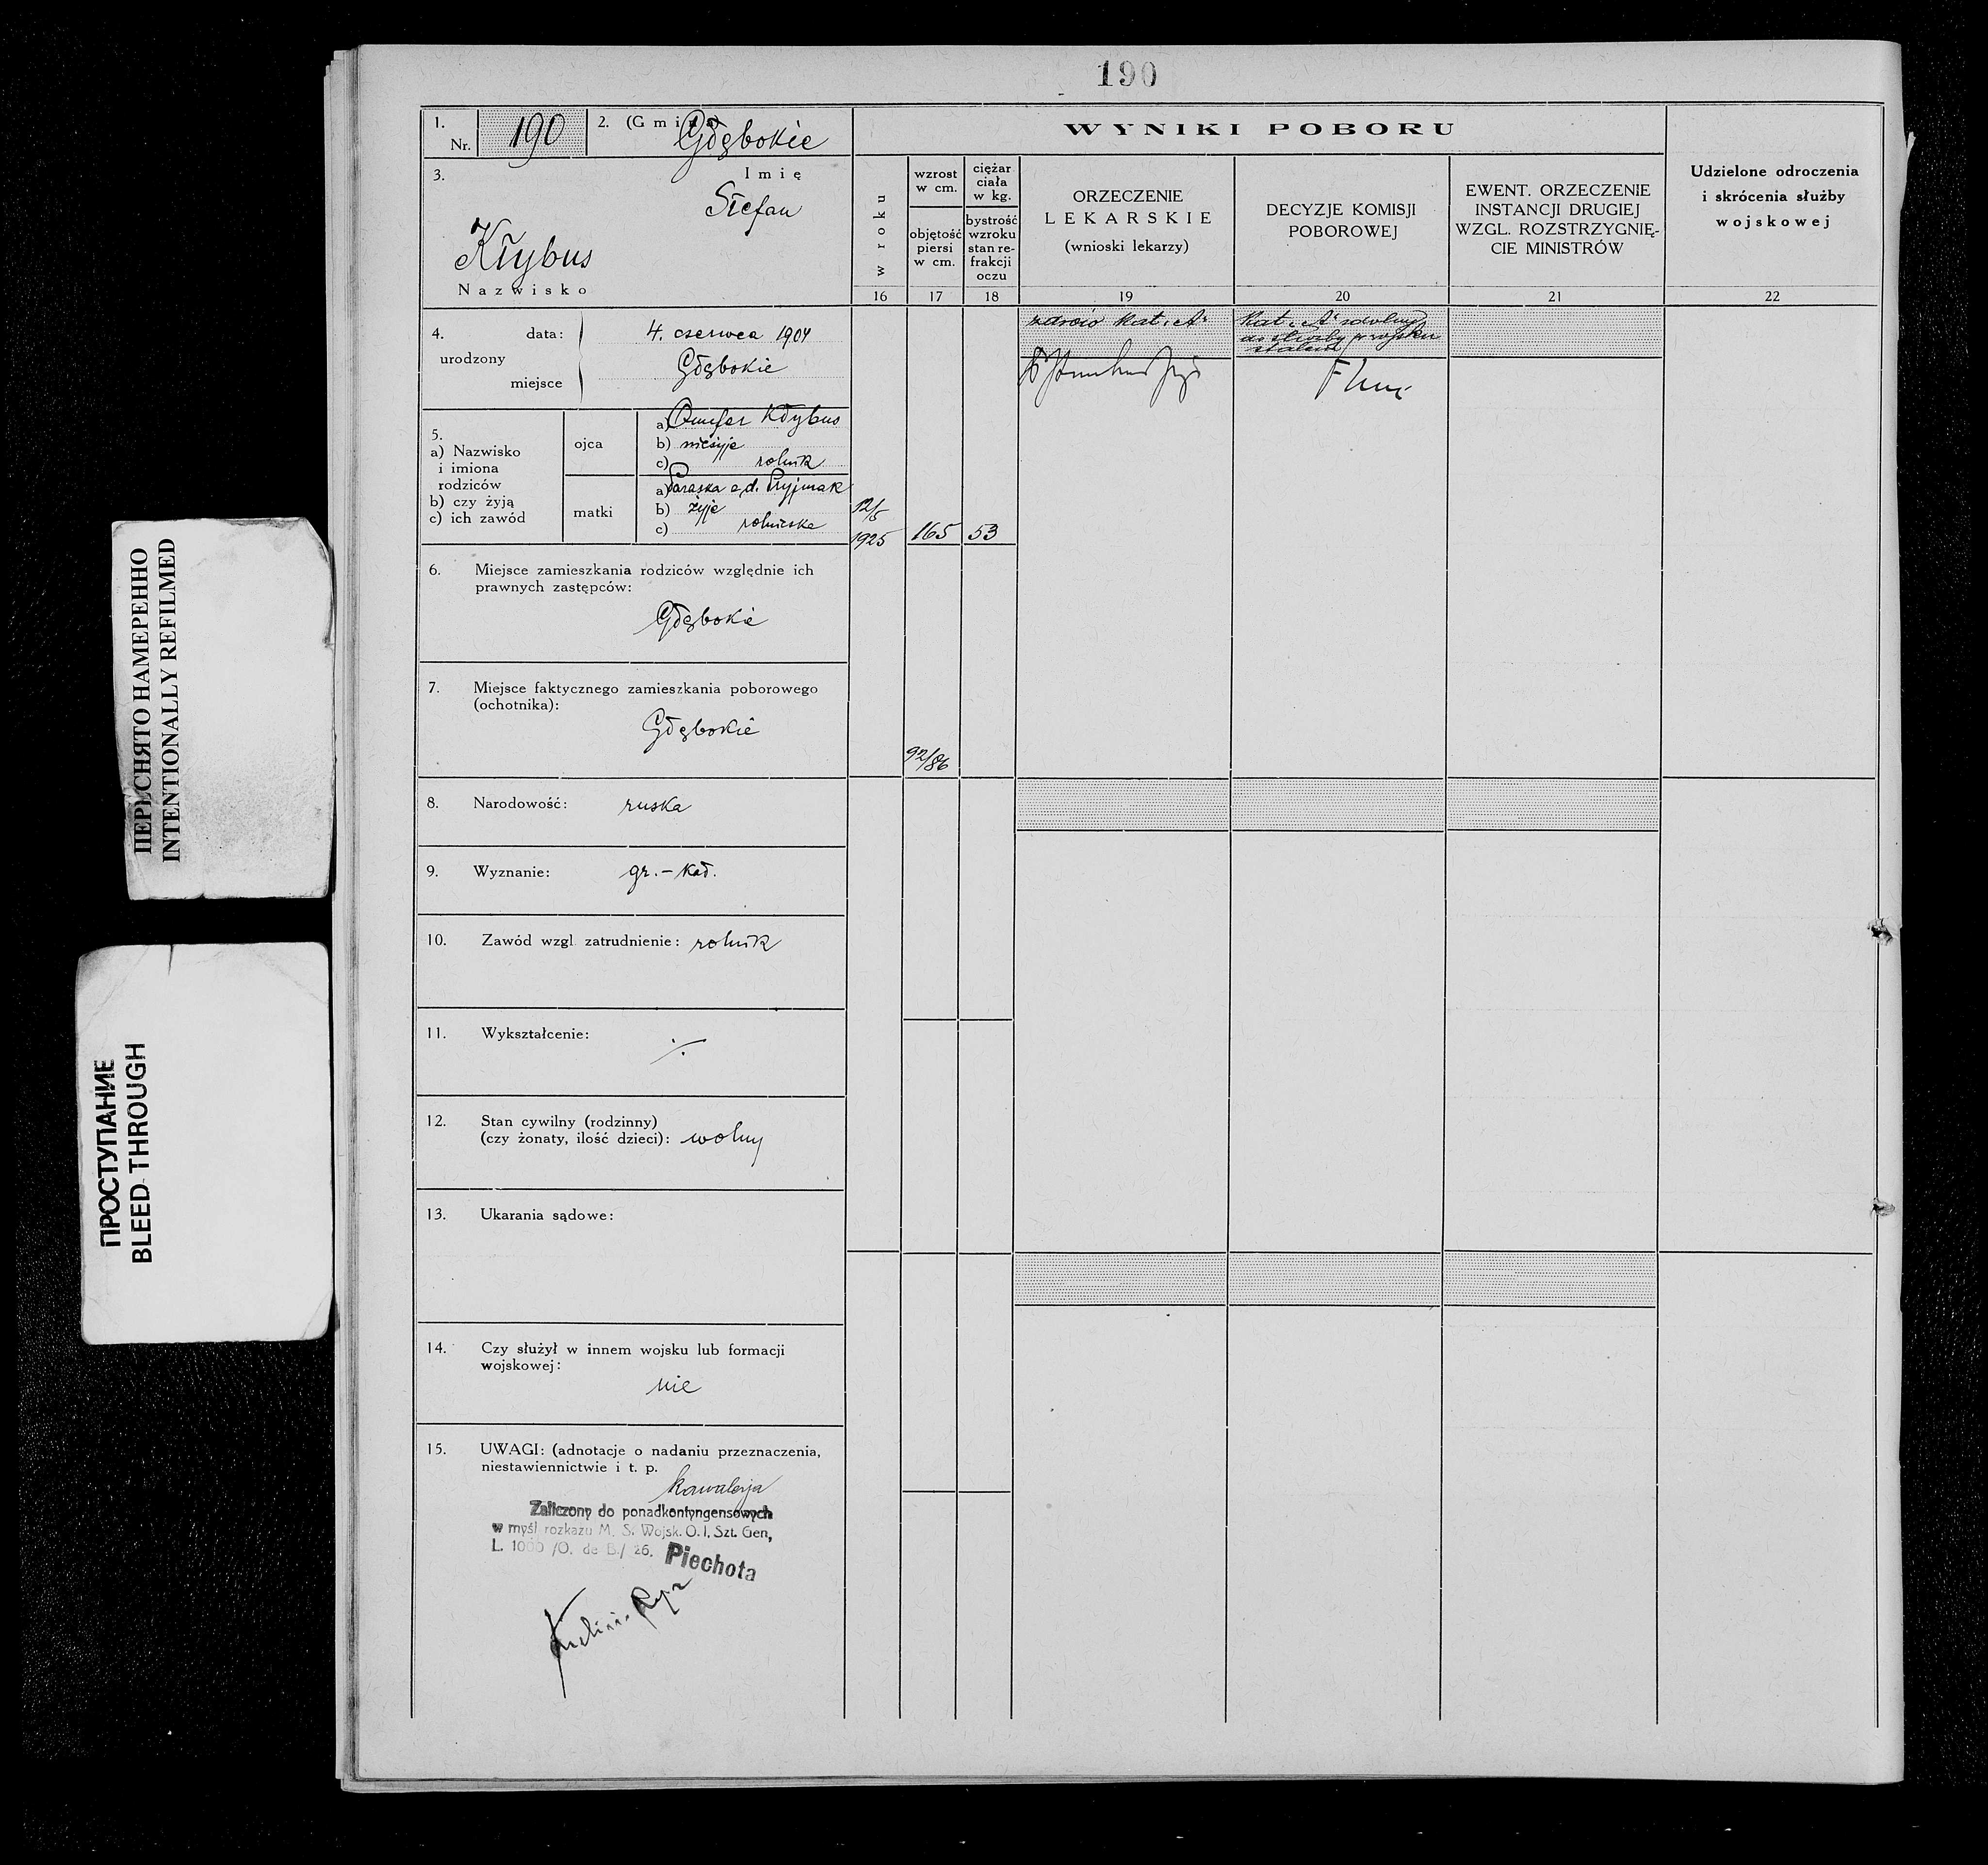 190
1.
Nr. 190
2. (Gmina) Głębokie
3.
Imię
Stefan
Kłybus
Nazwisko
4.
urodzony
data: 4. czerwca 1904
miejsce Głębokie
5.
a) Nazwisko
i imiona
rodziców
b) czy żyją
c) ich zawód
ojca
a) Kłybus
b) nieżyje
c) rolnik
matki
a) Paraska Pryjmak
b) żyje
c) rolniczka
6. Miejsce zamieszkania rodziców względnie ich
prawnych zastępców:
Głębokie
7. Miejsce faktycznego zamieszkania poborowego
(ochotnika):
Głębokie
8. Narodowość: ruska
9. Wyznanie: gr.-kat.
10. Zawód wzgl. zatrudnienie: rolnik
11. Wykształcenie:
12. Stan cywilny (rodzinny)
(czy żonaty, ilość dzieci): wolny
13. Ukarania sądowe:
14. Czy służył w innem wojsku lub formacji
wojskowej:
nie
15. UWAGI: (adnotacje o nadaniu przeznaczenia,
niestawiennictwie i t. p.
kawalerja
Zaliczony do ponadkontyngensowych
w myśl rozkazu M. S. Wojsk. O. I. Szt. Gen,
L. 1000 /O. de B./ 26.
Piechota
WYNIKI POBORU
w roku
16
wzrost
w cm.
objętość
piersi
w cm.
17
ciężar
ciała
w kg.
bystrość
wzroku
stan re-
frakcji
oczu
18
ORZECZENIE
LEKARSKIE
(wnioski lekarzy)
19
DECYZJE KOMISJI
POBOROWEJ
20
EWENT. ORZECZENIE
INSTANCJI DRUGIEJ
WZGL. ROZSTRZYGNIĘ-
CIE MINISTRÓW
21
Udzielone odroczenia
i skrócenia służby
wojskowej
22
12/5
1925
165
53
92/86
kat. "A"
kat. "A" zdolny
do służby w wojsku
stałem
ПЕРЕСНЯТО НАМЕРЕННО
INTENTIONALLY REFILMED
ПРОСТУПАНИЕ
BLEED-THROUGH